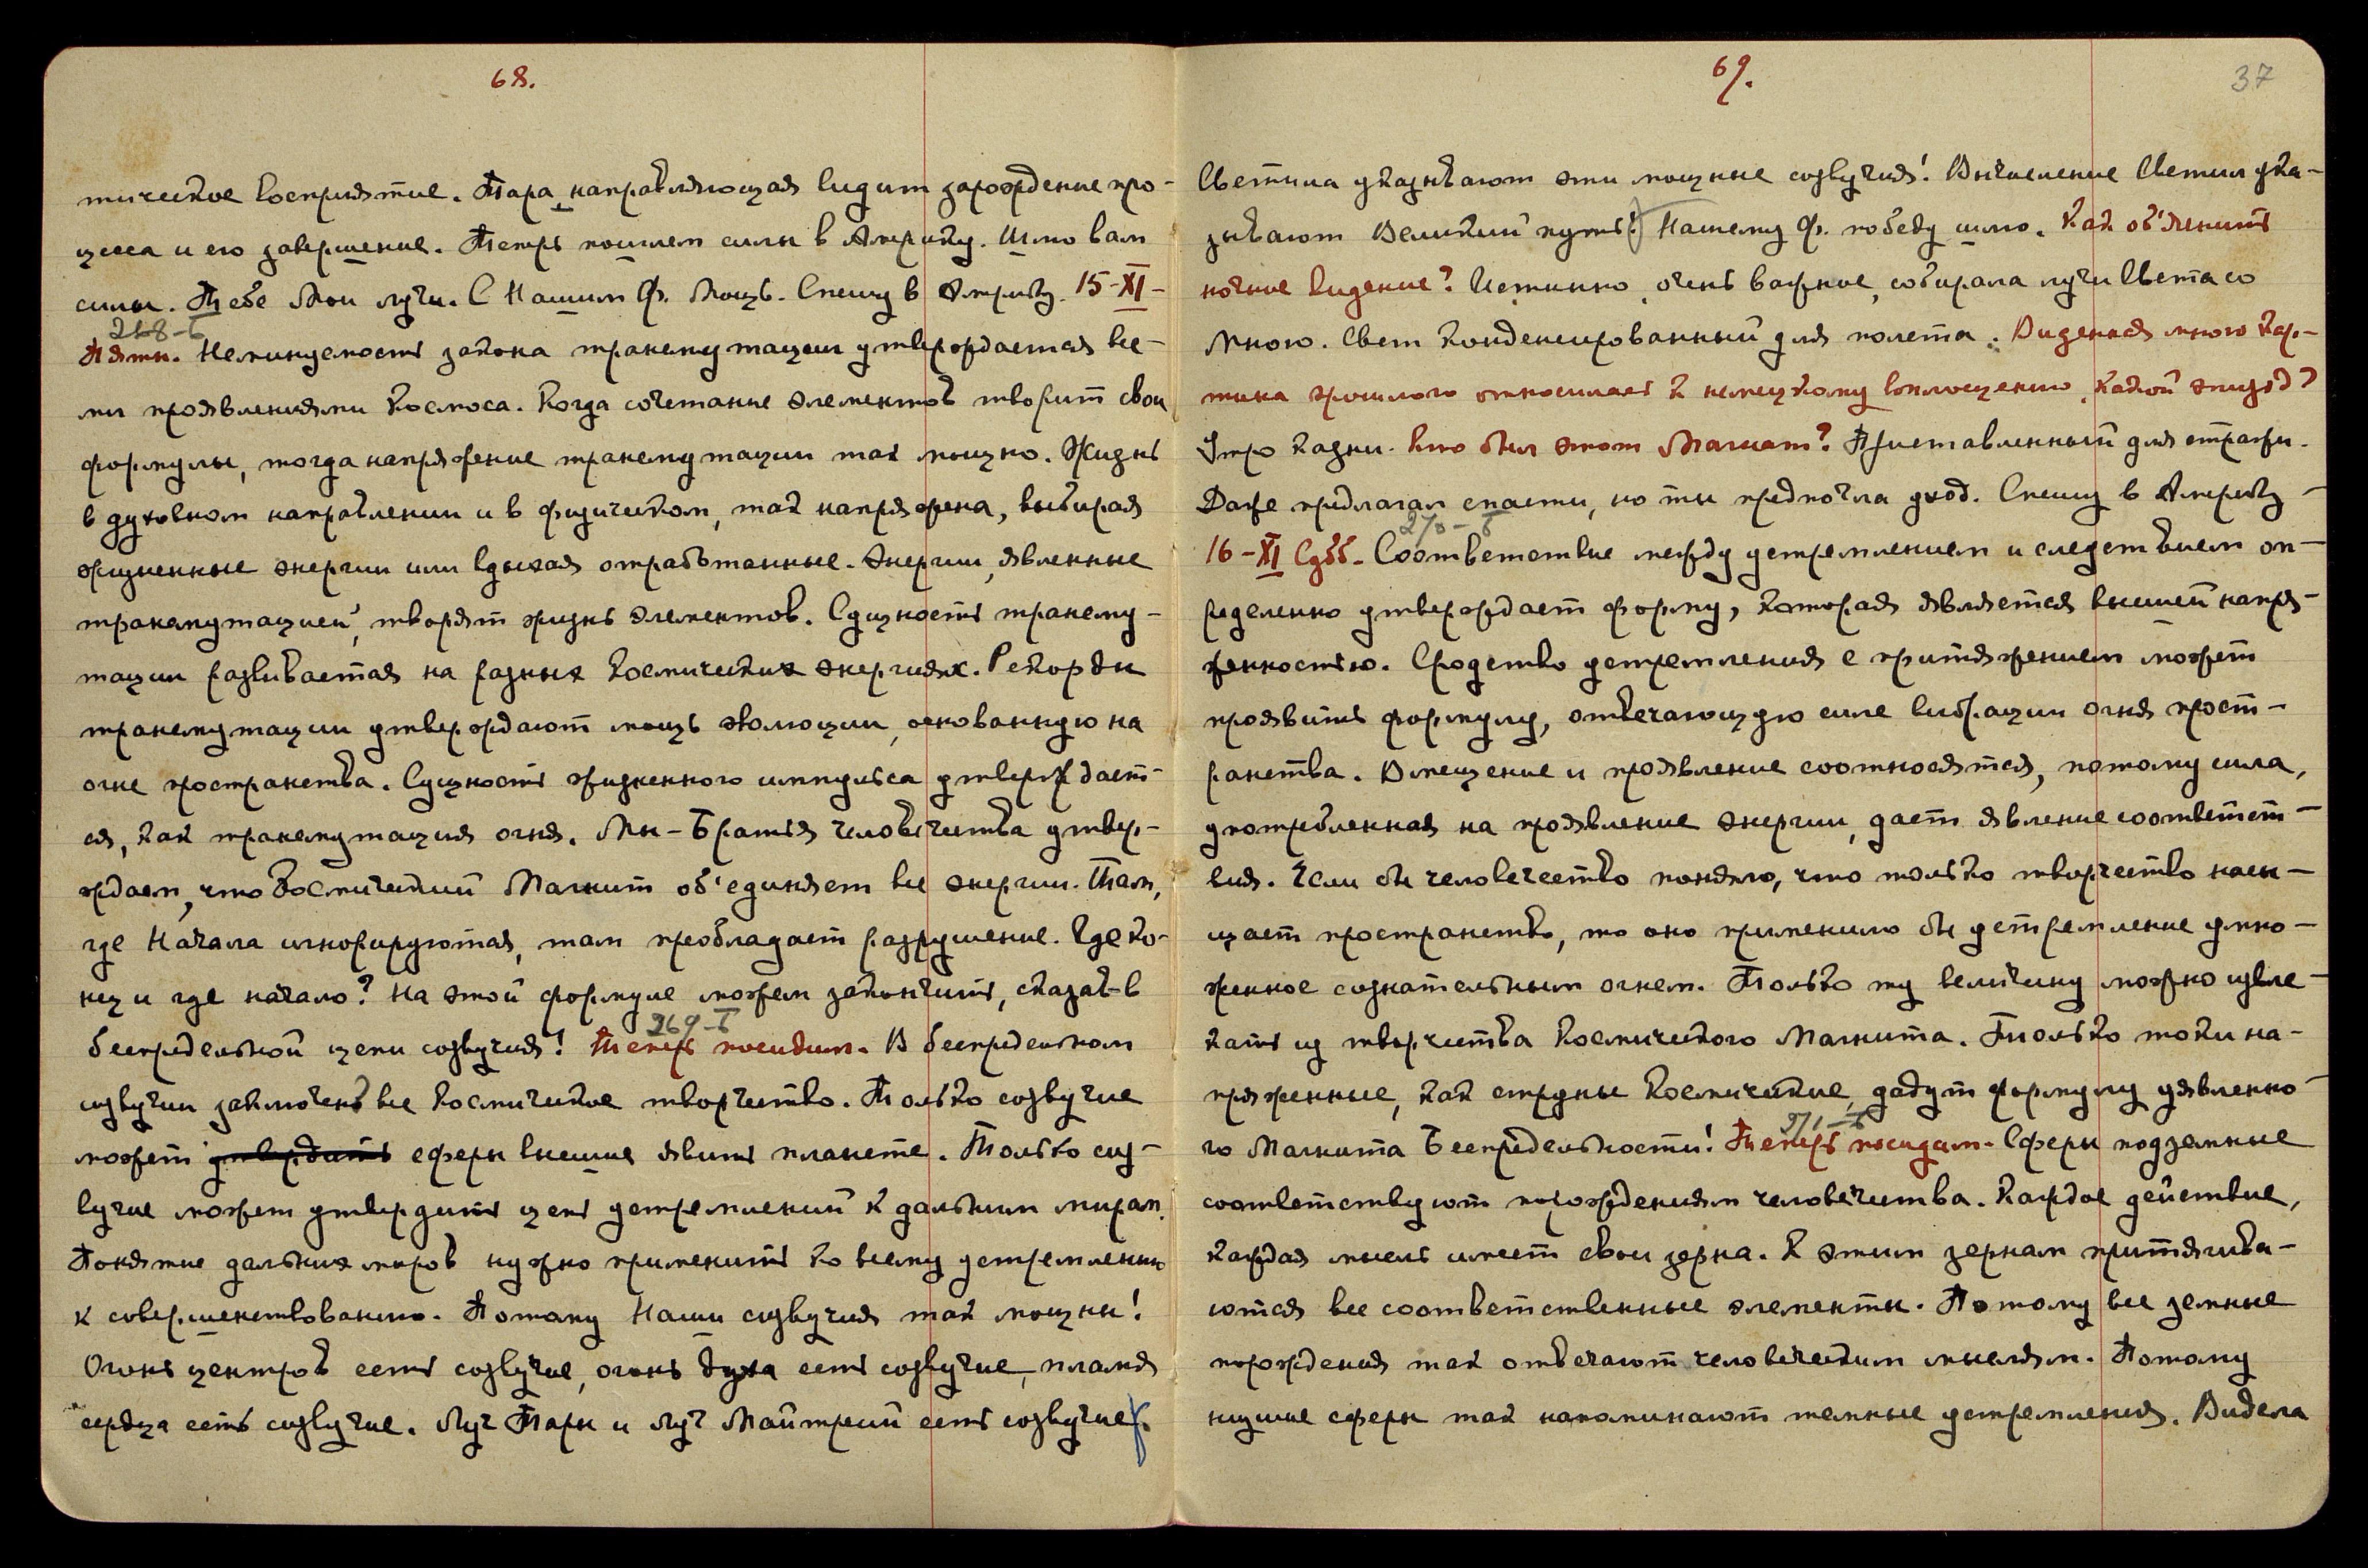 68.
тическое восприятие. Тара, направляющая видит зарождение про-
цесса и его завершение. Теперь пошлем силы в Америку. Шлю вам
силы. Тебе Мои лучи. С Нашим Ф. Мощь. Спешу в Америку. 15-XI-
268-Б
Пятн. Неминуемость закона трансмутации утверждается все-
ми проявлениями Космоса. Когда сочетание элементов творит свои
формулы, тогда напряжение трансмутации так мощно. Жизнь
в духовном направлении и в физическом, так напряжена, выбирая
жизненные энергии или вдыхая отработанные. Энергии, явленные
трансмутацией, творят жизнь элементов. Сущность трансму-
тации развивается на разных космических энергиях. Рекорды
трансмутации утверждают мощь эволюции, основанную на
огне пространства. Сущность жизненного импульса утверждает-
ся, как трансмутация огня. Мы - Братья человечества утвер-
ждаем, что Космический Магнит об'единяет все энергии. Там,
где Начала игнорируются, там преобладает разрушение. Где ко-
нец и где начало? На этой формуле можем закончить, сказав-в
беспредельной цепи созвучия!
269-Б
Теперь посидим. В беспредельном
созвучии заключено все космическое творчество. Только созвучие
может утвердить сферы высшие явить планете. Только соз-
вучие может утвердить цепь устремлений к дальним мирам.
Понятие дальних миров нужно применить ко всему устремлению
к совершенствованию. Потому Наши созвучия так мощны!
Огонь центров есть созвучие, огонь духа есть созвучие, пламя
сердца есть созвучие. Луч Тары и луч Майтрейи есть созвучие.
69.
37
Светила указывают эти мощные созвучия! Вычисление Светил ука-
зывают Великий путь! Нашему Ф. победу шлю. Как об'яснить
ночное видение? Истинно, очень важное, собирала лучи Света со
Мною. Свет конденсированный для полета. Виденная мною кар-
тина прошлого относилась к немецкому воплощению, какой эпизод?
Утро казни. Кто был этот Магнат? Приставленный для стражи.
Даже предлагал спасти, но ты предпочла уход. Спешу в Америку -
270-Б
16-XI Субб. Соответствие между устремлением и следствием оп-
ределенно утверждает форму, которая является высшей напря-
женностью. Сродство устремления с притяжением может
проявить формулу, отвечающую силе вибрации огня прост-
ранства. Вмещение и проявление соотносятся, потому сила,
употребленная на проявление энергии, дает явление соответст-
вия. Если бы человечество поняло, что только творчество насы-
щает пространство, то оно применило бы устремление умно-
женное сознательным огнем. Только ту величину можно извле-
кать из творчества Космического Магнита. Только токи на-
пряженные, как струны космические, дадут формулу уявленно-
го Магнита Беспредельности!
271-Б
Теперь посидим. Сферы подземные
соответствуют порождениям человечества. Каждое действие,
каждая мысль имеет свои зерна. К этим зернам притягива-
ются все соответственные элементы. Потому все земные
порождения так отвечают человеческим мыслям. Потому
низшие сферы так напоминают темные устремления. Видела